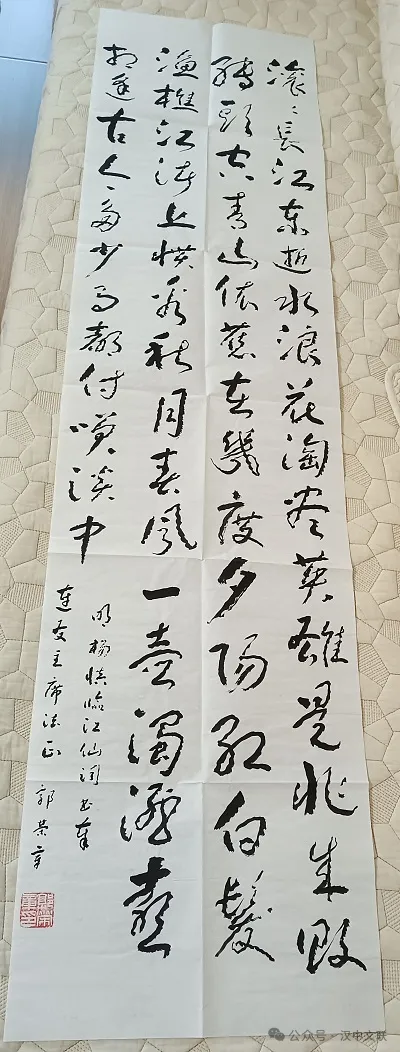 滚滚長江东逝水浪花淘尽英雄是非成败
轉頭空青山依舊在幾度夕阳红白髮
渔樵江渚上惯看秋月春风一壶濁酒喜
相逢古今多少事都付咲谈中
明杨慎临江仙词书奉
友主席法正 郭荣章
公众号·汉中文联